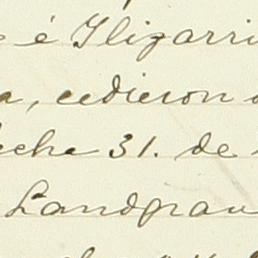 é Iligarri
a, cedieron
echa 31. de
Landgrau